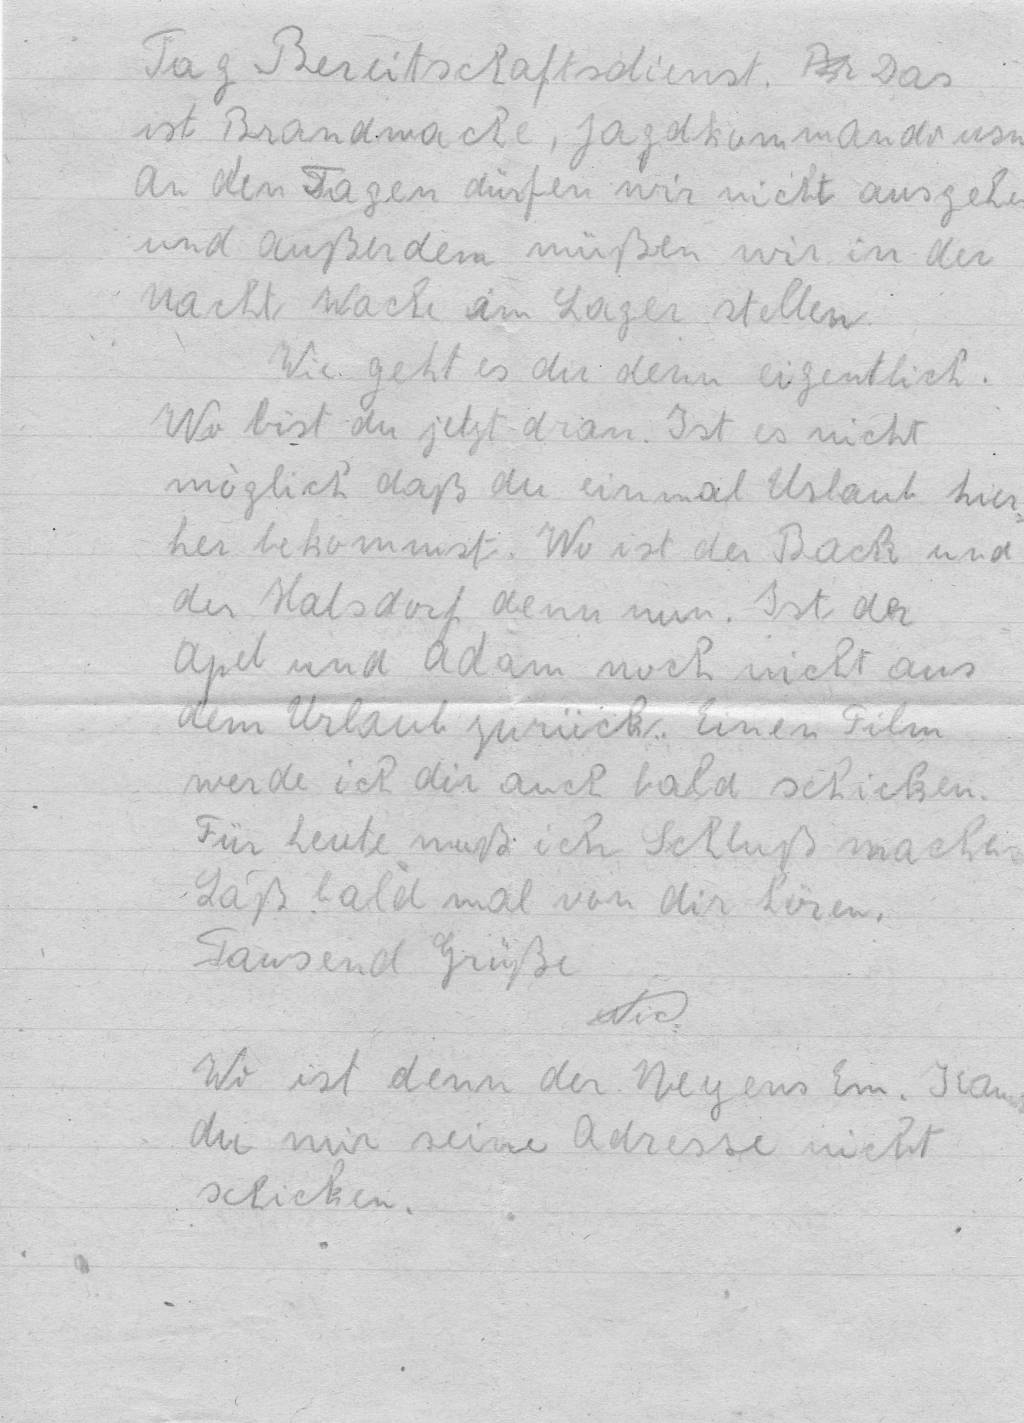 Tag Bereitschaftsdienst. Das
ist Brandwache, Jagdkommando usw
An den Tagen dürfen wir nicht ausgehen
und außerdem müßen wir in der
Nacht Wache im Lager stellen.
Wie geht es dir denn eigentlich.
Wo bist du jetzt dran. Ist es nicht
möglich daß du einmal Urlaub hier-
her bekommst. Wo ist der Back und
der Halsdorf denn nun. Ist der
Apel und Adam noch nicht aus
dem Urlaub zurück. Einen Film
werde ich dir auch bald schicken.
Für heute muß ich Schluß machen
Laß bald mal von dir hören.
Tausend Grüße
Nic.
Wo ist denn der Neyens Em. Kannst
du mir seine Adresse nicht
schicken.